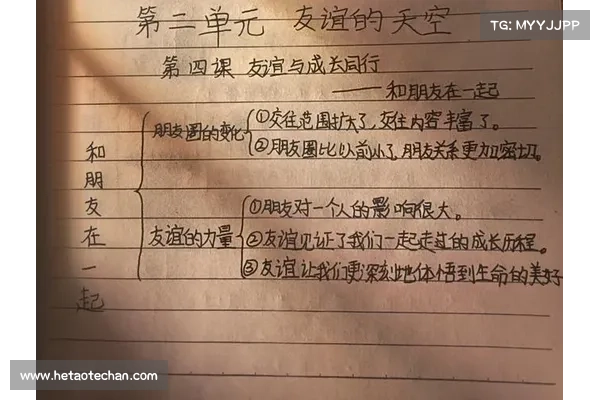 TG: MYYJJPP
第二单元 友谊的天空
第四课 友谊与成长同行
——和朋友在一起
和朋友在一起
朋友圈的变化
①交往范围扩大了,交往内容丰富了。
②朋友圈比以前小了,朋友关系更加密切。
友谊的力量
①朋友对一个人的影响很大。
②友谊见证了我们一起走过的成长历程。
③友谊让我们更深刻地体悟到生命的美好
www.hetaotechan.com